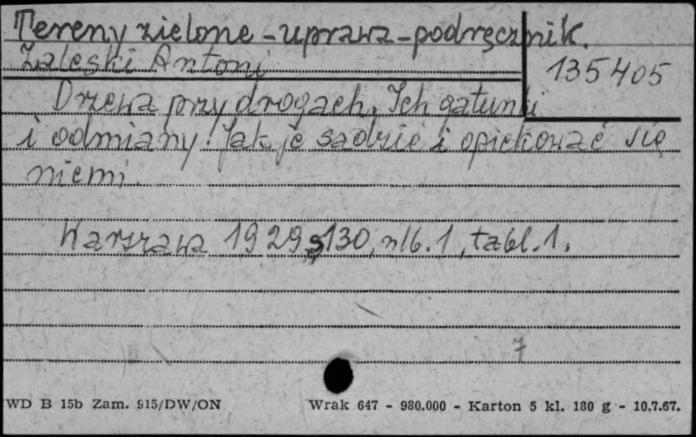 Tereny zielone - uprawa - podręcznik.
Zaleski Antoni
135405
Drzewa przy drogach. Ich gatunki
i odmiany. Jak je sadzić i opiekować się
niemi.
Warszawa 1929, s. 130, nlb. 1, tabl. 1.
7
WD B 15b Zam. 915/DW/ON Wrak 647 - 980.000 - Karton 5 kl. 180 g - 10.7.67.